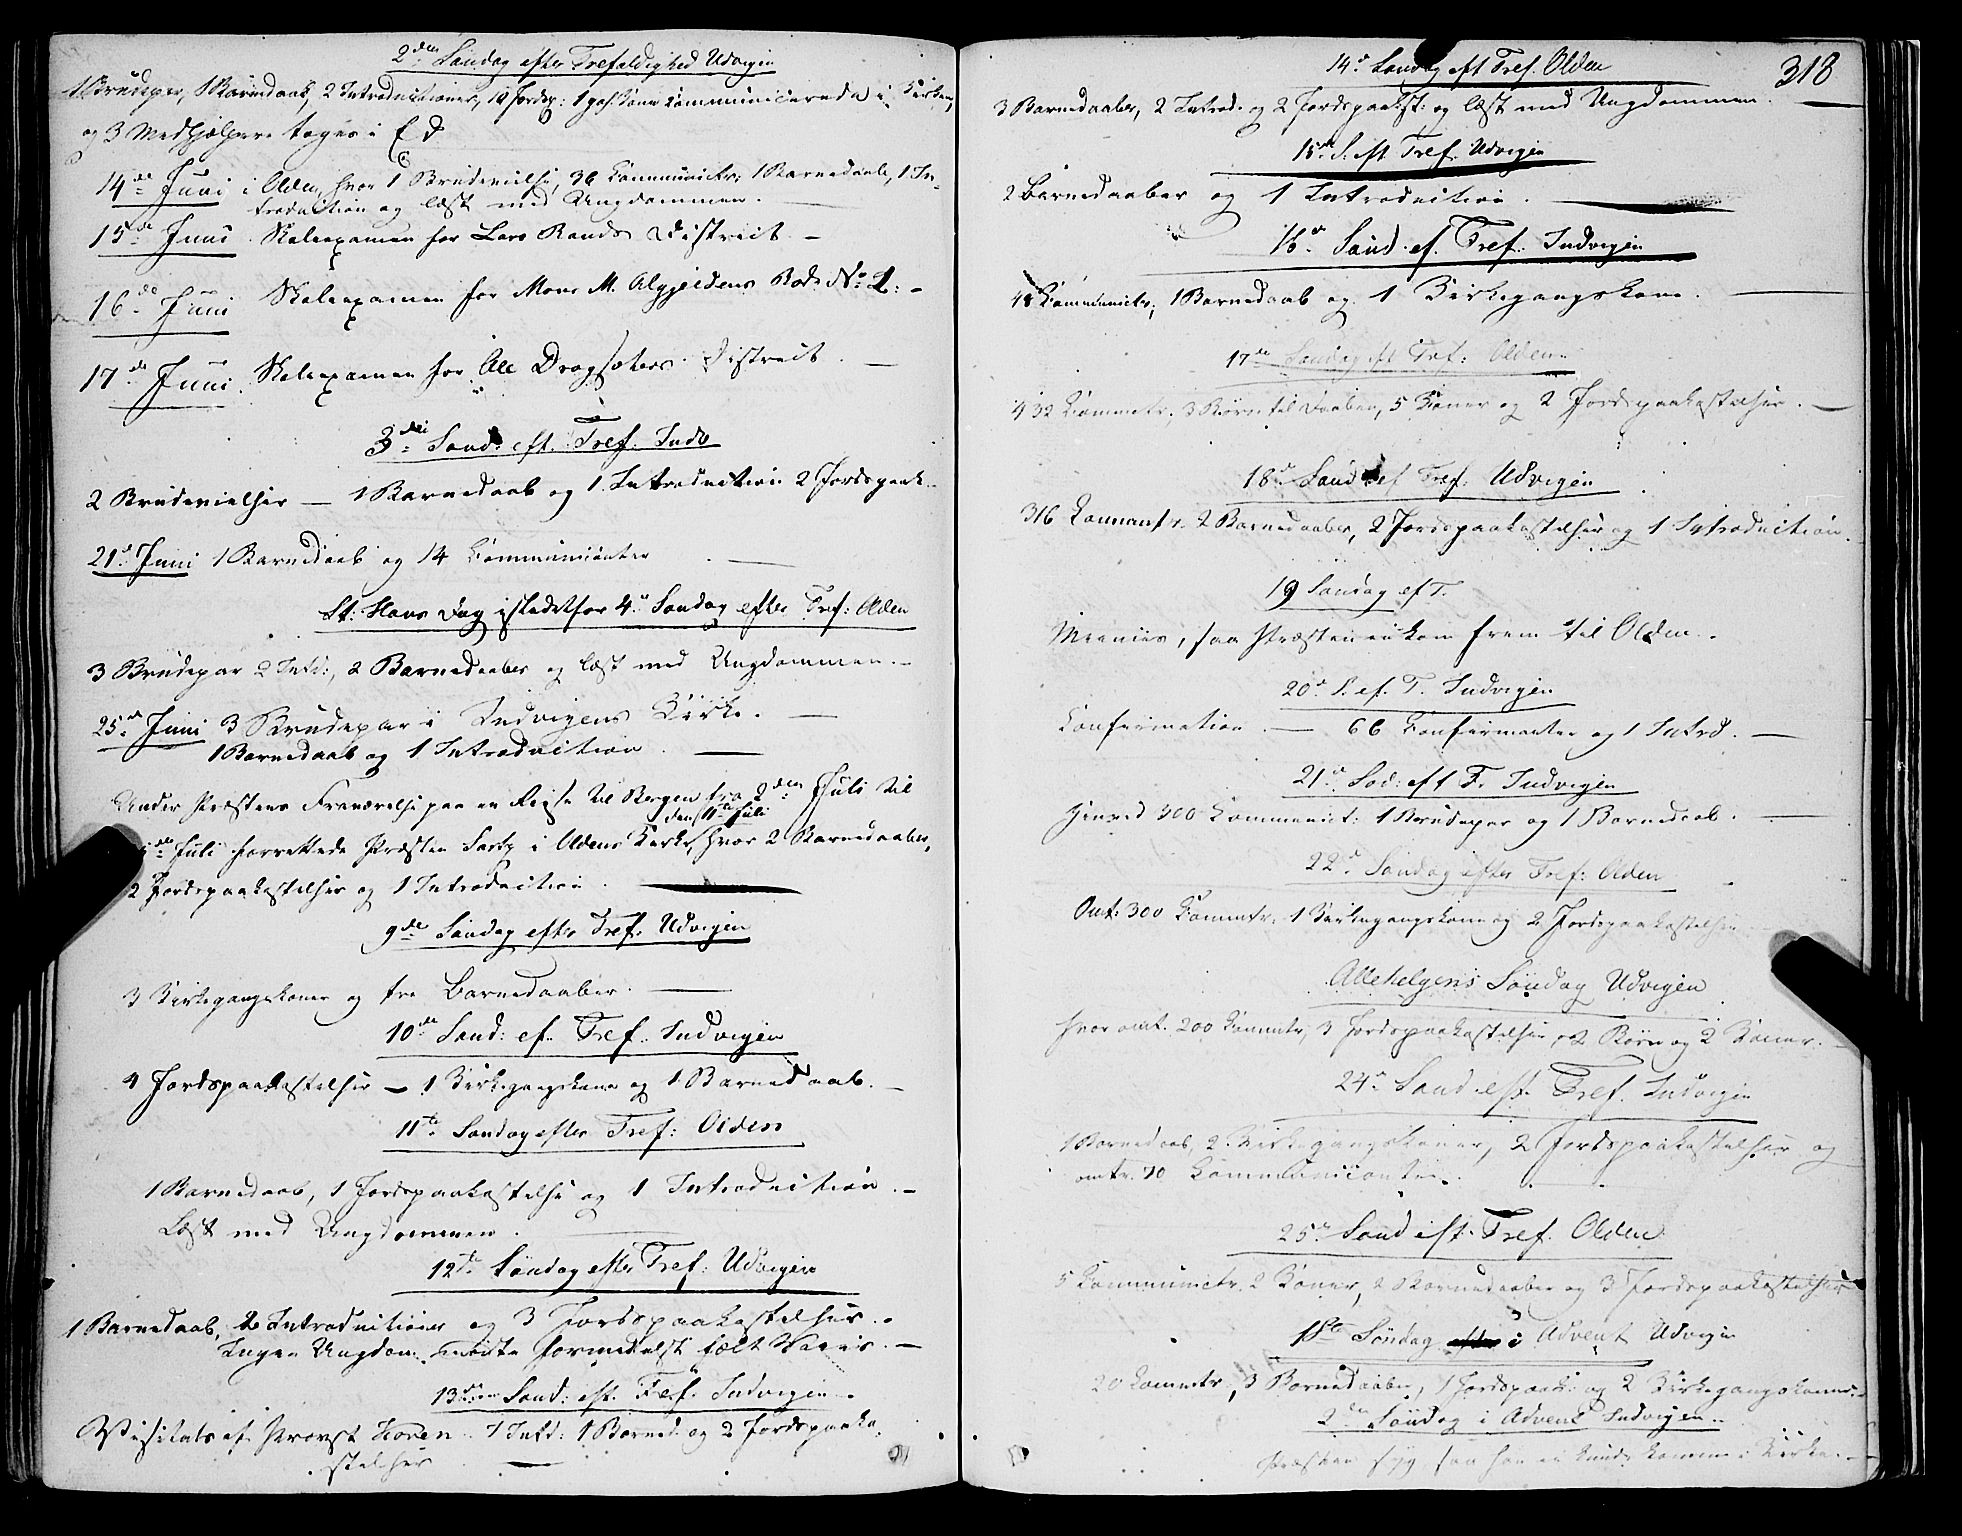 2den Søndag efter Trefoldighed Udvigen
1 Brudepar, 1 Barnedaab, 2 Introductioner, 10 Jordsp: 1 Communicerede i Kirken,
og 3 Medhjælpere toges i Ed
14de Juni i Olden, hvor 1 Brudevielse, 36 Communictr: 1 Barnedaab, 1 In-
troduction og læst med Ungdommen. —
15de Juni Skoleexamen for Lars Rands District. —
16de Juni Skoleexamen for Mons M. Rode No 1. —
17de Juni Skoleexamen for Ole Dragsæters District. —
3die Sønd: eft. Tref. Indv
2 Brudevielser — 1 Barnedaab og 1 Introduction 2 Jordspaak.
21de Juni 1 Barnedaab og 14 Communicanter —
St: Hans Dag istedetfor 4de Søndag efter Tref: Olden
3 Brudepar 2 Intd:, 2 Barnedaaber og læst med Ungdommen. —
25de Juni 3 Brudepar i Indvigens Kirke. —
1 Barnedaab og 1 Introduction. —
Under Præstens Fraværelse paa en Rejse til Bergen fra 2den Juli til
den 11te Juli
de Juli forrettede Præsten i Oldens Kirke, hvor 2 Barnedaaber,
2 Jordspaakastelser og 1 Introduction. —
9de Søndag efter Tref: Udvigen
3 Kirkegangskoner og tre Barnedaaber. —
10de Sønd: ef. Tref. Indvigen
4 Jordspaakastelser — 1 Kirkegangskone og 1 Barnedaab. —
11te Søndag efter Tref: Olden
1 Barnedaab, 1 Jordspaakastelse og 1 Introduction. —
Læst med Ungdommen. —
12te Søndag efter Tref: Udvigen
1 Barnedaab, 2 Introductioner og 3 Jordspaakastelser. —
Ingen Ungdom mødte formedelst fælt Veir. —
13de Sønd: eft. Tref. Indvigen
Visitats af Provst Koren. 1 Intd: 1 Barned: og 2 Jordspaaka-
stelser —
318
14de Søndag eft Tref. Olden
3 Barnedaaber, 2 Introd: og 2 Jordspaakst: og læst med Ungdommen. —
15de S. eft Tref. Udvigen
2 Barnedaaber og 1 Introduction. —
16de Sønd. ef. Tref. Indvigen
Communictr, 1 Barnedaab og 1 Kirkegangskone. —
17de Søndag eft Tref: Olden
432 Commctr, 3 Børn til Daaben, 5 Koner og 2 Jordspaakastelser. —
18de Sønd ef Tref: Udvigen
316 Commctr. 2 Barnedaaber, 2 Jordspaakastelser og 1 Introduction.
19 Søndag ef T.
saa Præsten ei kom frem til Olden.
20de S. ef. T. Indvigen
Confirmation. — 66 Confirmanter og 1 Introd. —
21de Sød: eft T. Indvigen
henved 300 Communict: 1 Brudepar og 1 Barnedaab. —
22de Søndag efter Tref: Olden
Omt: 300 Commctr. 1 Kirkegangskone og 2 Jordspaakastelser
Allehelgens Søndag Udvigen
hvor omt. 200 Commctr, 3 Jordspaakastelser, 2 Børn og 2 Koner. —
24de Sønd eft. Tref. Indvigen
1 Barnedaab, 2 Kirkegangskoner, 2 Jordspaakastelser og
omtr. 70 Communicanter.
25de Sønd eft. Tref. Olden
5 Communictr. 2 Koner, 2 Barnedaaber og 3 Jordspaakastelser
1ste Søndag i Advent Udvigen
20 Commctr, 3 Barnedaaber, 1 Jordspaak: og 2 Kirkegangskoner. —
2den Søndag i Advent Indvigen
Præsten syg saa han ei kunde komme i Kirke. —